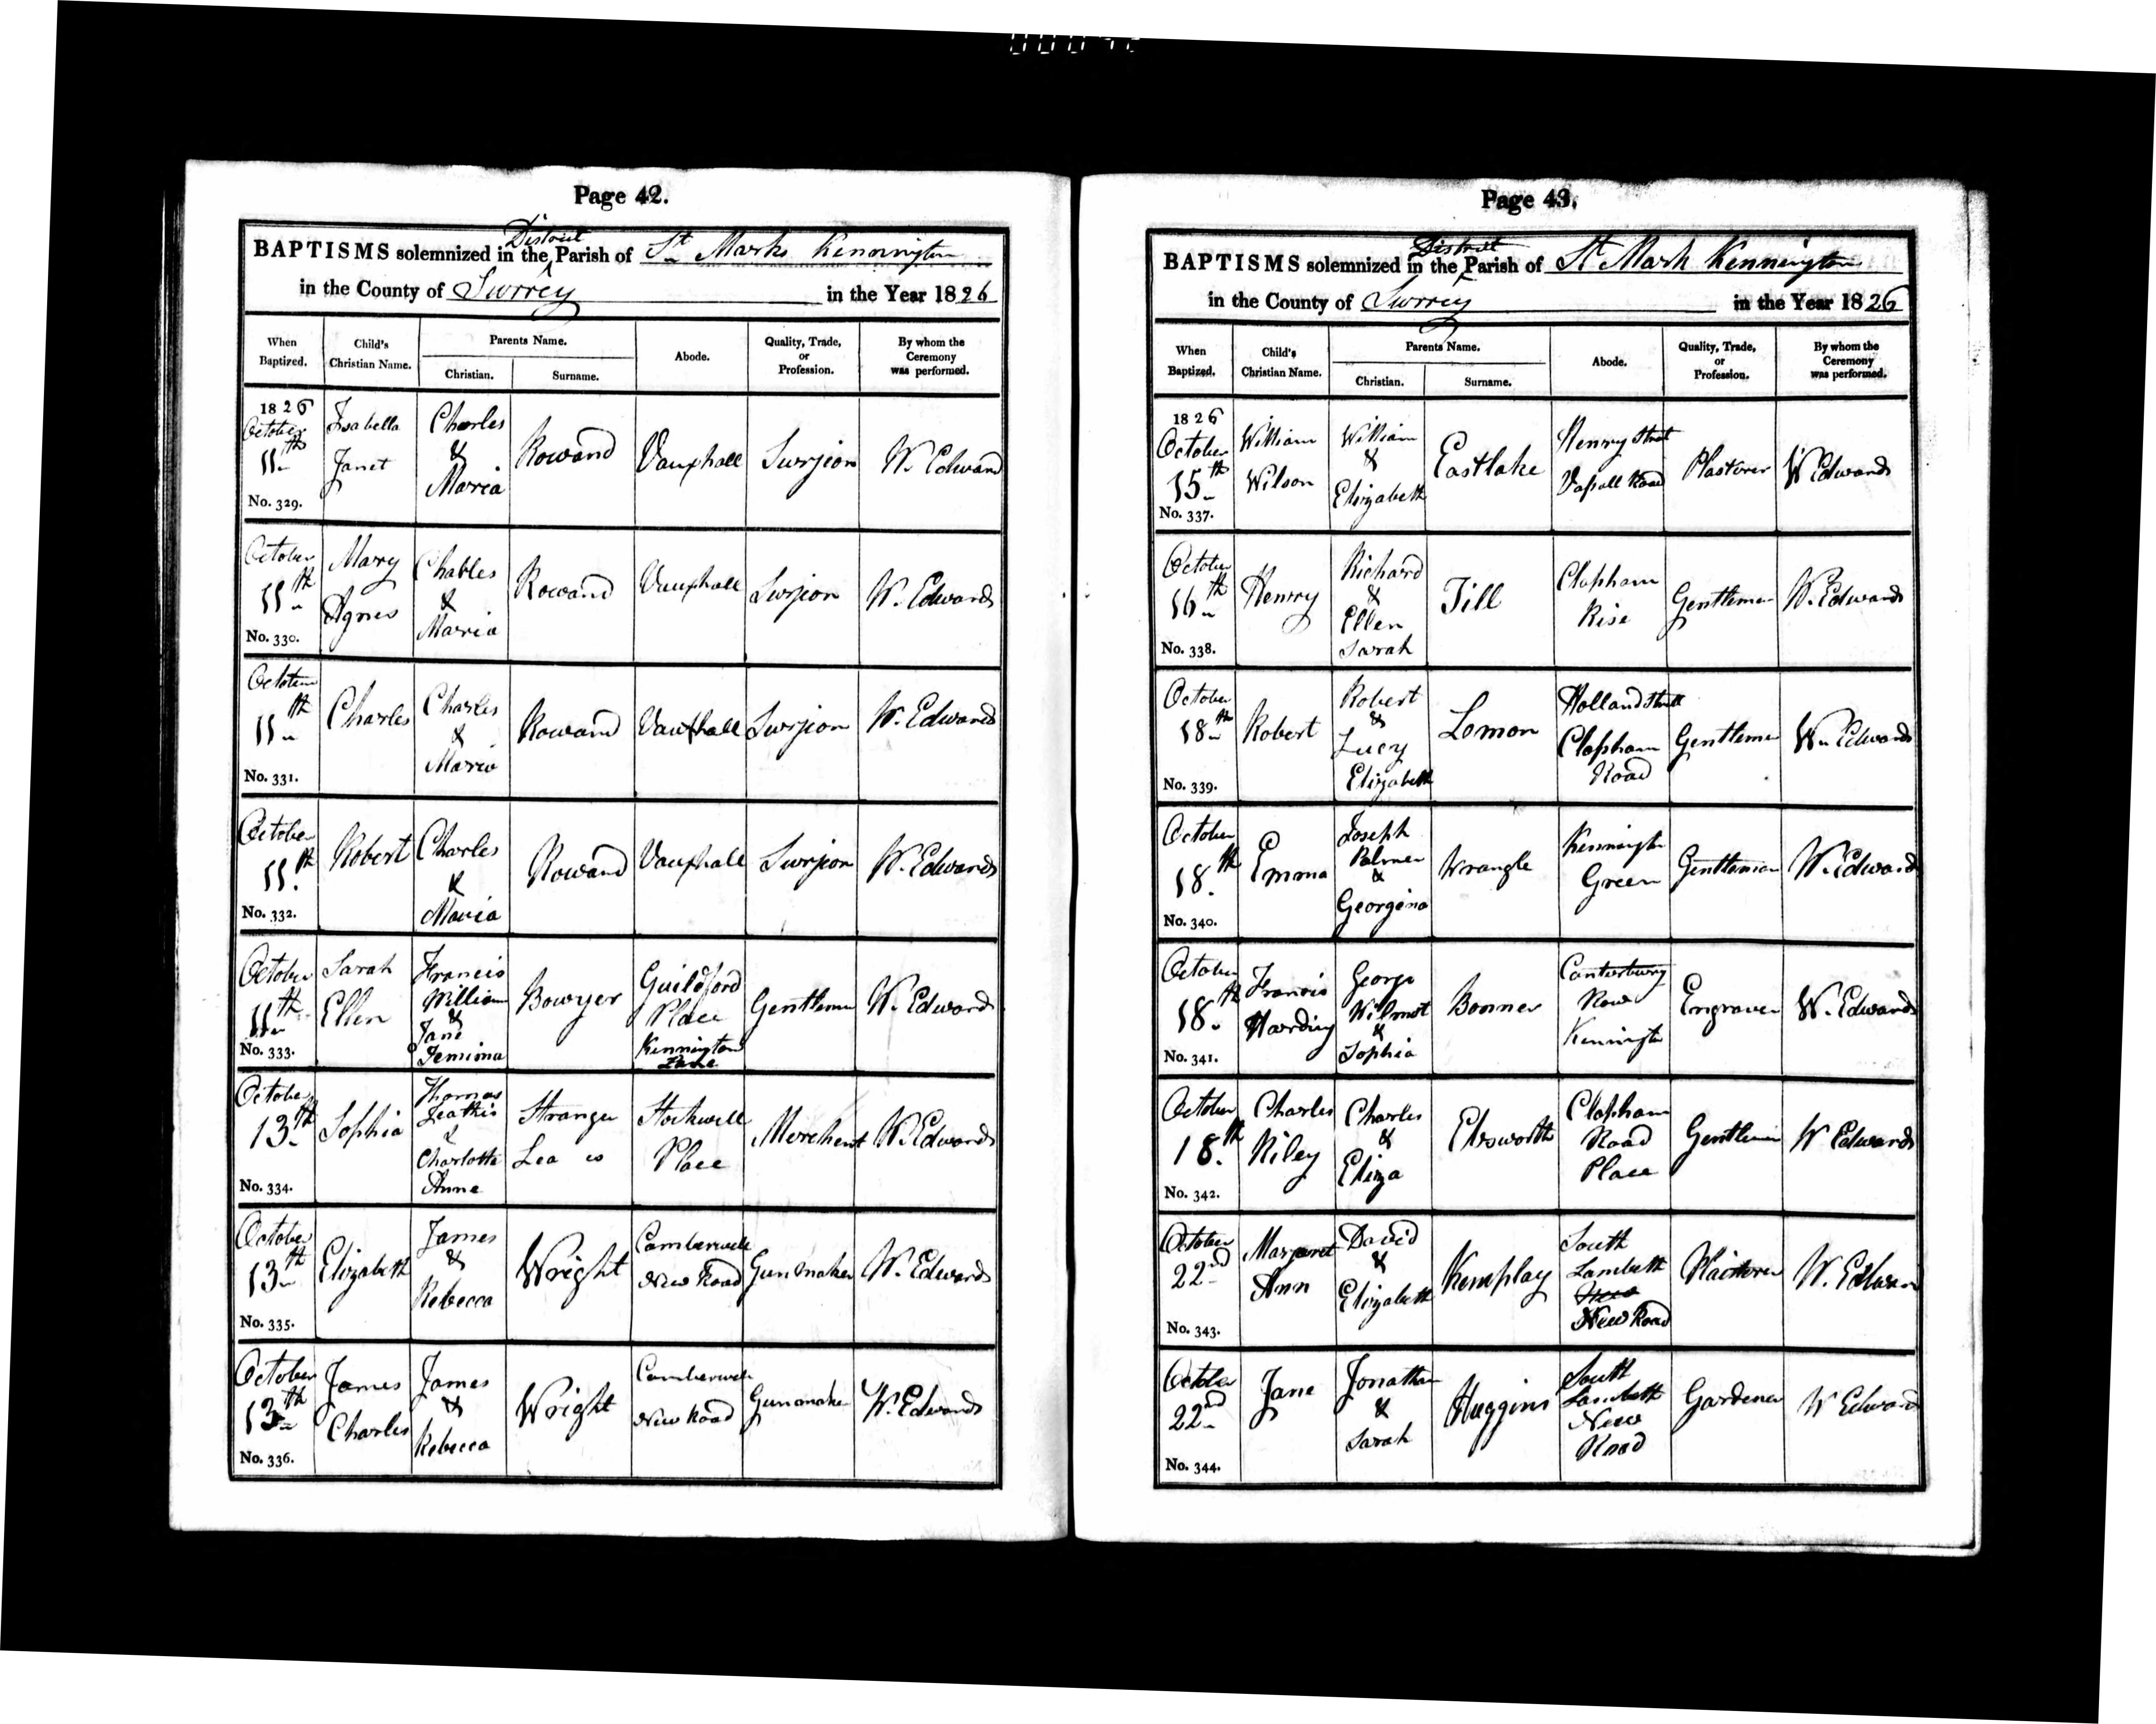 Page 42.
BAPTISMS solemnized in the District Parish of St Marks Kennington
in the County of Surrey in the Year 1826
When Baptized. Child's Christian Name. Parents Name. Christian. Surname. Abode. Quality, Trade, or Profession. By whom the Ceremony was performed.
1826 October 11th No. 329. Isabella Janet Charles & Maria Rowand Vauxhall Surjion W. Edward
October 11th No. 330. Mary Agnes Charles & Maria Rowand Vauxhall Surjion W. Edwards
October 11th No. 331. Charles Charles & Maria Rowand Vauxhall Surjion W. Edwards
October 11th No. 332. Robert Charles & Maria Rowand Vauxhall Surjion W. Edwards
October 11th No. 333. Sarah Ellen Francis William & Jane Jemima Bowyer Guildford Place Kennington Lane Gentleman W. Edwards
October 13th No. 334. Sophia Thomas & Charlotte Anne Stranger Stockwell Place Merchent W. Edwards
October 13th No. 335. Elizabeth James & Rebecca Wright Camberwell New Road Gun maker W. Edwards
October 13th No. 336. James Charles James & Rebecca Wright Camberwell New Road Gunmaker W. Edwards
Page 43.
BAPTISMS solemnized in the District Parish of St Mark Kennington
in the County of Surrey in the Year 1826
When Baptized. Child's Christian Name. Parents Name. Christian. Surname. Abode. Quality, Trade, or Profession. By whom the Ceremony was performed.
1826 October 15th No. 337. William Wilson William & Elizabeth Eastlake Henry Street Vassall Road Plasterer W Edwards
October 16th No. 338. Henry Richard & Ellen Sarah Till Clapham Rise Gentleman W. Edwards
October 18th No. 339. Robert Robert & Lucy Elizabeth Lomon Holland Street Clapham Road Gentleman Wm Edwards
October 18th No. 340. Emma Joseph Palmer & Georgina Wrangle Kennington Green Gentleman W. Edward
October 18th No. 341. Francis Harding George Wilmot & Sophia Bonner Canterbury Row Kennington Engraver W. Edwards
October 18th No. 342. Charles Riley Charles & Eliza Ebsworth Clapham Road Place Gentleman W Edwards
October 22nd No. 343. Margaret Ann David & Elizabeth Kemplay South Lambeth New New Road Plaisterer W. Edwar
October 22nd No. 344. Jane Jonathan & Sarah Huggins South Lambeth New Road Gardener W Edward